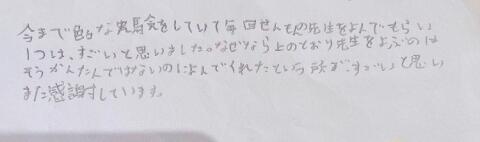 今まで色々な実験会をしていて毎回せんもんの先生をよんでもらい
1つは、すごいと思いました。なぜなら上のとおり先生をよぶのは
そうかんたんではないのによんでくれたという所が、すごいと思い
また感謝しています。